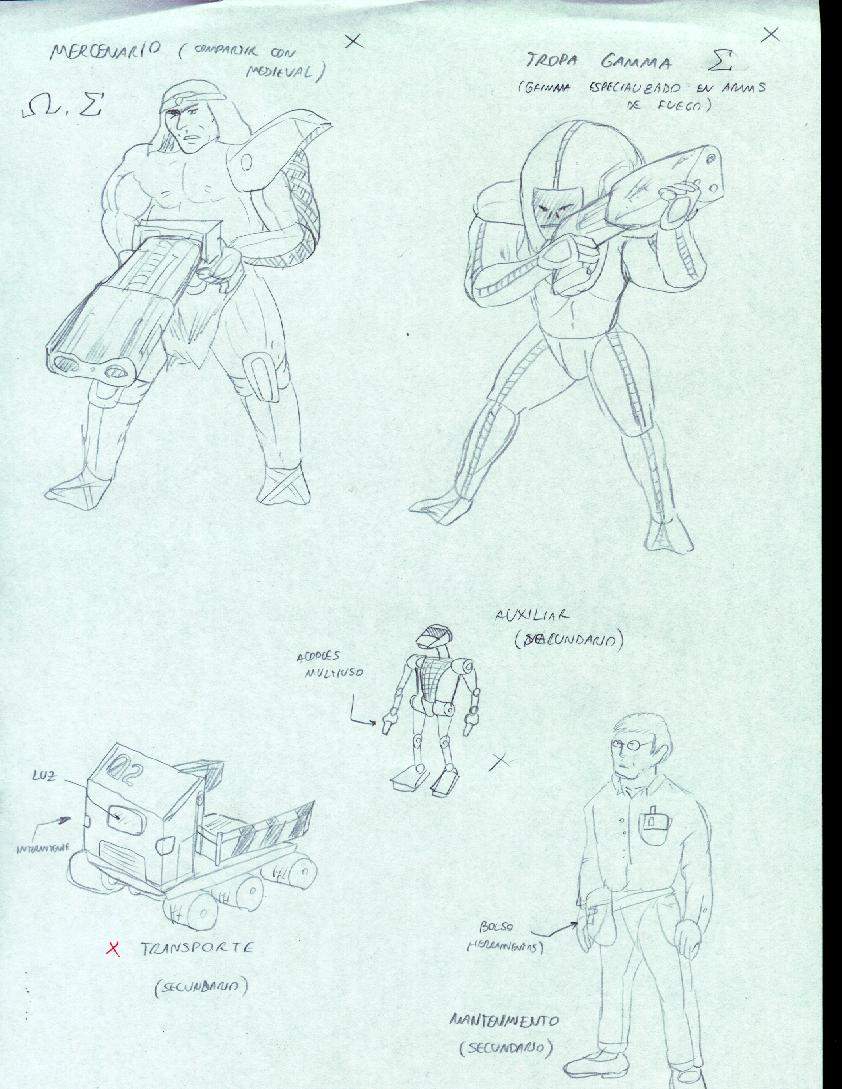 MERCENARIO (COMPARTIR CON
MEDIEVAL)
Ω, Σ
TROPA GAMMA Σ
(GAMMA ESPECIALIZADO EN ARMAS
DE FUEGO)
AUXILIAR
(SECUNDARIO)
ACOPLES
MULTIUSO
02
LUZ
INTERMITENTE
X TRANSPORTE
(SECUNDARIO)
BOLSO
(HERRAMIENTAS)
MANTENIMIENTO
(SECUNDARIO)